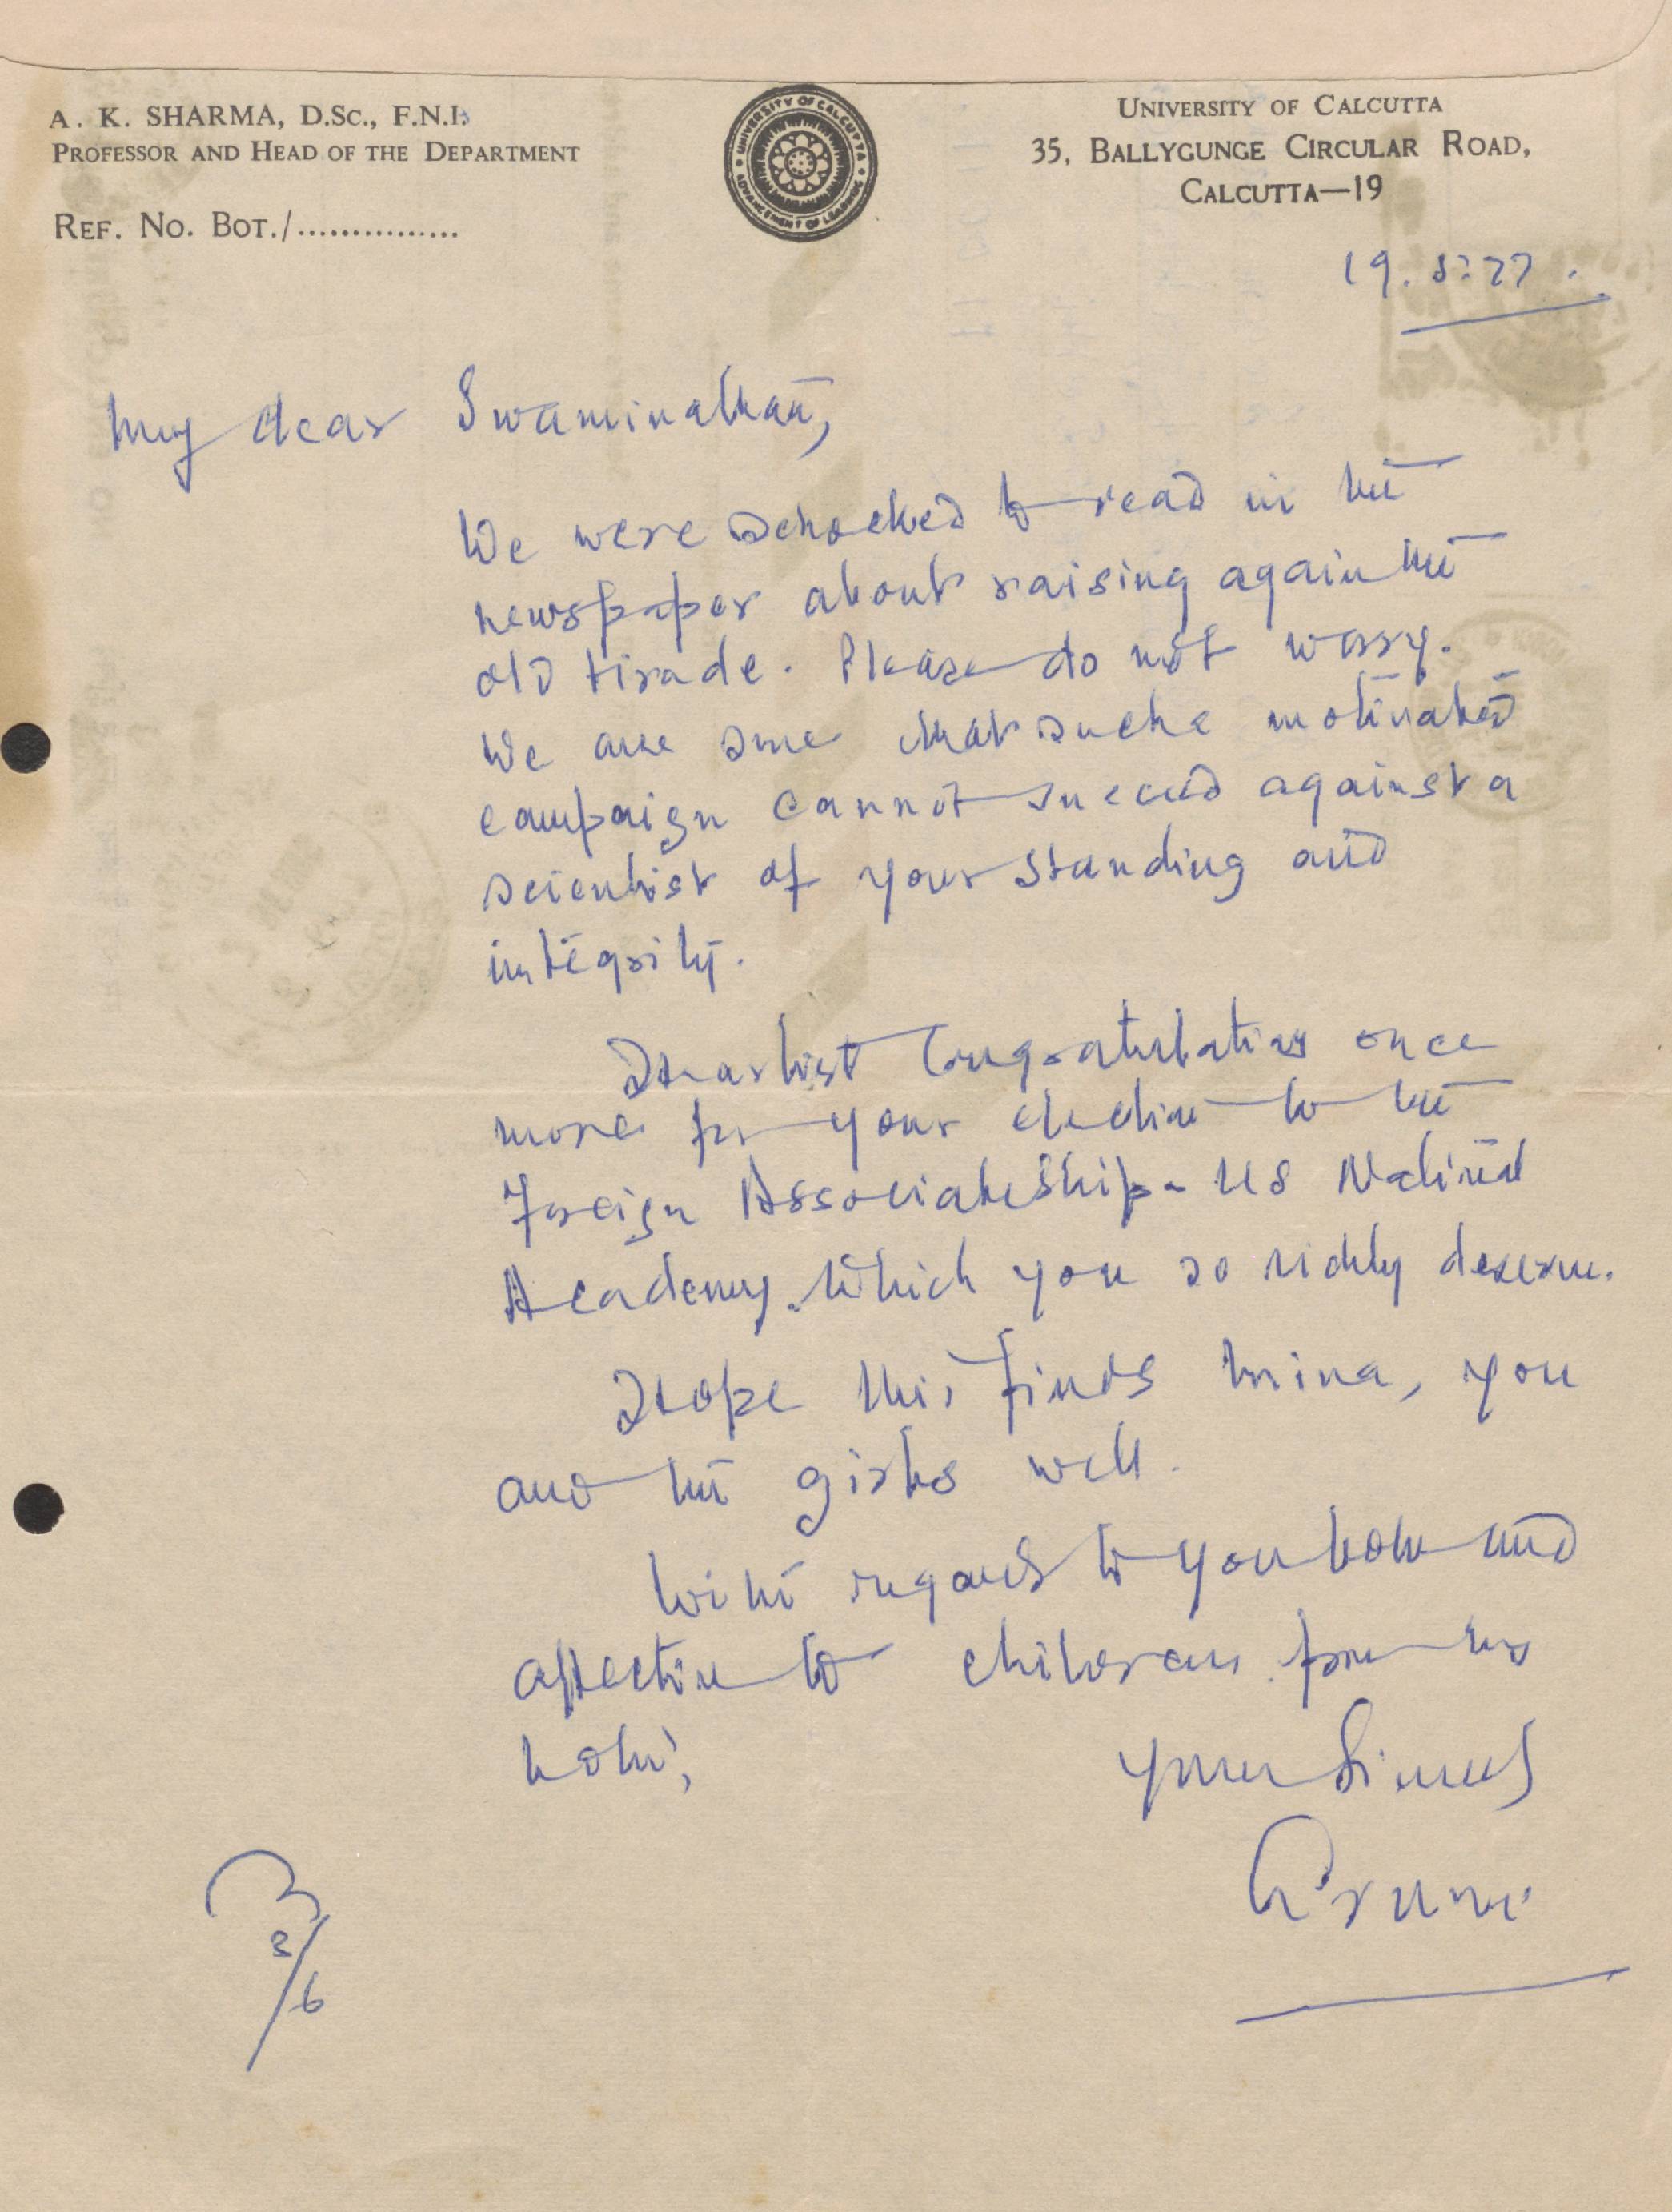 A. K. SHARMA, D.Sc., F.N.I.
PROFESSOR AND HEAD OF THE DEPARTMENT
REF. NO. BOT./...............
UNIVERSITY OF CALCUTTA
ADVANCEMENT OF LEARNING
UNIVERSITY OF CALCUTTA
35, BALLYGUNGE CIRCULAR ROAD,
CALCUTTA—19
19.5.77.
My dear Swaminathan,
We were schocked to read in the
newspaper about raising again the
old tirade. Please do not worry.
We are sure that suche motivated
campaign cannot succeed against a
scientist of your standing and
integrity.
Heartiest Congratulations once
more for your election to the
Foreign Associateship - US National
Academy. Which you so richly deserve.
Hope this finds Mina, you
and the girls well.
With regards to you both and
affection to children from us
both,
Yours Sincerely
Arun
3/6